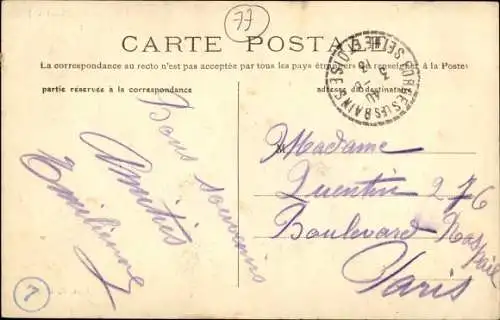 77
CARTE POSTALE
La correspondance au recto n'est pas acceptée par tous les pays étrangers se renseigner à la Poste
partie réservée à la correspondance
adresse du destinataire
FORGES LES BAINS
SEINE ET OISE
Bons souvenirs
Amitiés
Emilienne
M
Madame
Quentin 276
Boulevard Raspail
Paris
7